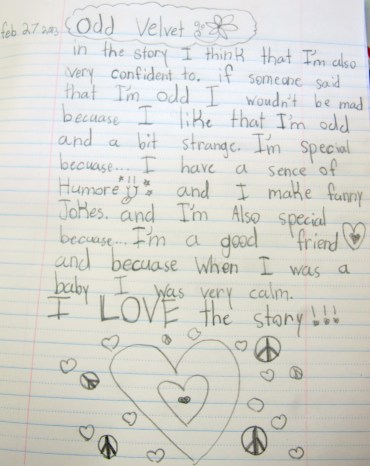 feb 27 2013
Odd Velvet
in the story I think that I'm also
very confident to. if someone said
that I'm odd I woudn't be mad
becuase I like that I'm odd
and a bit strange. I'm special
becuase... I have a sence of
Humore!! and I make funny
Jokes. and I'm Also special
becuase... I'm a good friend
and becuase when I was a
baby I was very calm.
I LOVE the story!!!